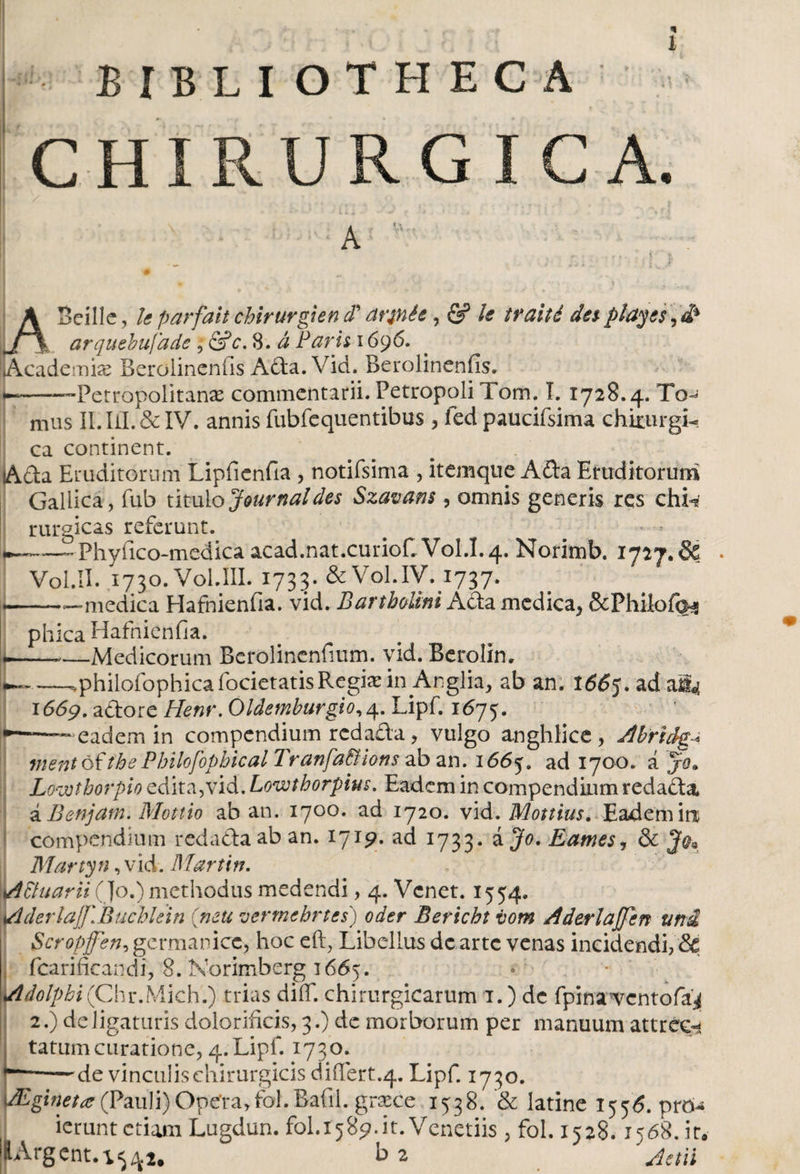 1
BIBLIOTHECA
CHIRURGICA.
A
ABeille, le parfait chirurgien d' armée, & le traité des playes, d'
arquebusade, &c. 8. á Paris 1696.
Academiæ Berolinensis Acta. Vid. Berolinensis.
——Petropolitanæ commentarii. Petropoli Tom. I. 1728.4. To-
mus II. III. & IV. annis subsequentibus, sed paucissima chirurgi-
ca continent.
Acta Eruditorum Lipsiensia, notissima, itemque Acta Eruditorum
Gallica, sub titulo Journal des Szavans, omnis generis res chi-
rurgicas referunt.
——Physico-medica acad.nat.curios. Vol.I. 4. Norimb. 1727. &
Vol.II. 1730. Vol.III. 1733. & Vol.IV. 1737.
——medica Hafniensia. vid. Bartholini Acta medica, &Philoso-
phica Hafniensia.
——Medicorum Berolinensium. vid. Berolin.
——philosophica societatis Regiæ in Anglia, ab an. 1665. ad an.
1669. actore Henr. Oldemburgio, 4. Lips. 1675.
——eadem in compendium redacta, vulgo anghlice, Abridg-
ment of the Philosophical Transactions ab an. 1665. ad 1700. á Jo.
Lowthorpio edita, vid. Lowthorpius. Eadem in compendium redacta
á Benjam. Mottio ab an. 1700. ad 1720. vid. Mottius. Eadem in
compendium redacta ab an. 1719. ad 1733. á Jo. Eames, & Jo.
Martyn, vid. Martin.
Actuarii (Jo.) methodus medendi, 4. Venet. 1554.
Aderlass. Buchlein (neu vermehrtes) oder Bericht vom Aderlassen und
Scropffen, germanice, hoc est, Libellus de arte venas incidendi, &
scarificandi, 8. Norimberg 1665.
Adolphi (Chr.Mich.) trias diss. chirurgicarum 1.) de spina ventosa,
2.) de ligaturis dolorificis, 3.) de morborum per manuum attrec-
tatum curatione, 4. Lips. 1730.
——de vinculis chirurgicis dissert.4. Lips. 1730.
Ægineta (Pauli) Opera, fol. Basil. græce 1538. & latine 1556. pro-
ierunt etiam Lugdun. fol.1589. it. Venetiis, fol. 1528. 1568. it.
Argent. 1542. b 2 Aetii